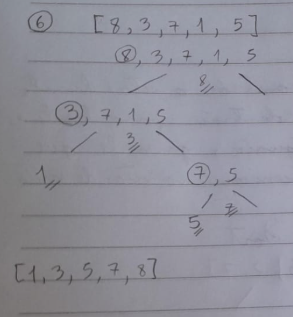 6 [8, 3, 7, 1, 5]
8, 3, 7, 1, 5
8
3, 7, 1, 5
3
1 7, 5
5 7
[1, 3, 5, 7, 8]